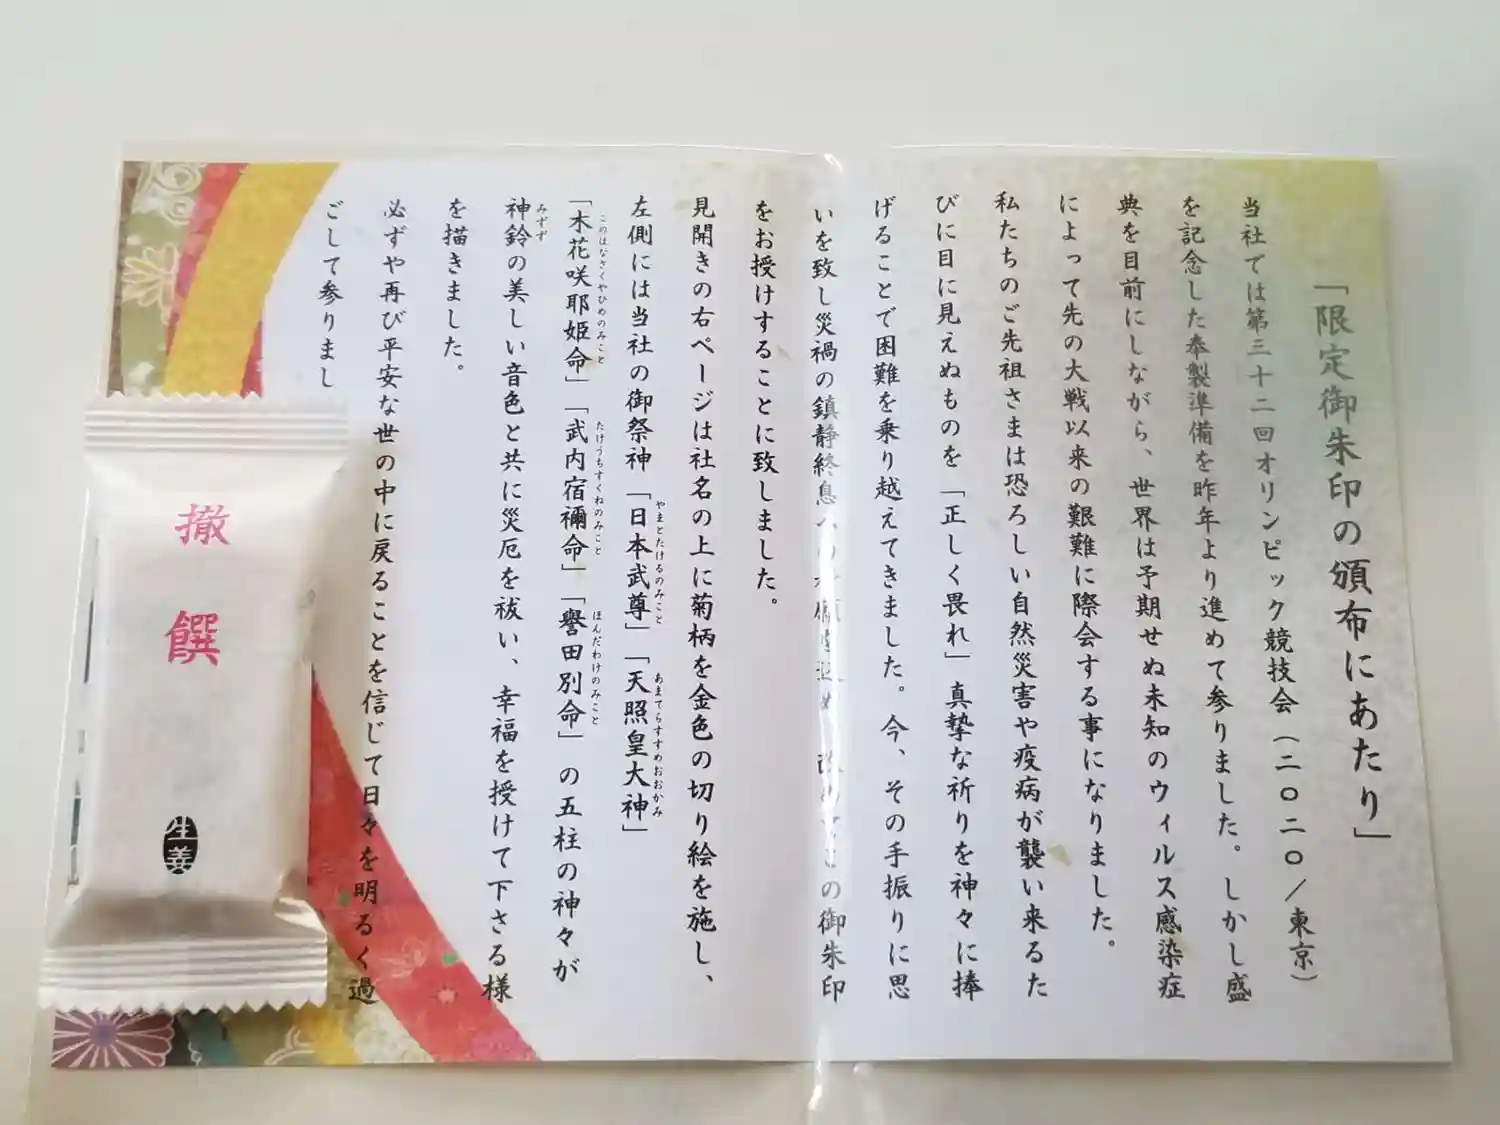 「限定御朱印の頒布にあたり」
当社では第三十二回オリンピック競技会（二〇二〇／東京）
を記念した奉製準備を昨年より進めて参りました。しかし盛
典を目前にしながら、世界は予期せぬ未知のウィルス感染症
によって先の大戦以来の艱難に際会する事になりました。
私たちのご先祖さまは恐ろしい自然災害や疫病が襲い来るた
びに目に見えぬものを「正しく畏れ」真摯な祈りを神々に捧
げることで困難を乗り越えてきました。今、その手振りに思
いを致し災禍の鎮静終息への の御朱印
をお授けすることに致しました。
見開きの右ページは社名の上に菊柄を金色の切り絵を施し、
左側には当社の御祭神「日本武尊」「天照皇大神」
やまとたけるのみこと あまてらすすめおおかみ
「木花咲耶姫命」「武内宿禰命」「譽田別命」の五柱の神々が
このはなさくやひめのみこと たけうちすくねのみこと ほんだわけのみこと
神鈴の美しい音色と共に災厄を祓い、幸福を授けて下さる様
みすず
を描きました。
必ずや再び平安な世の中に戻ることを信じて日々を明るく過
ごして参りまし
撤饌
生姜